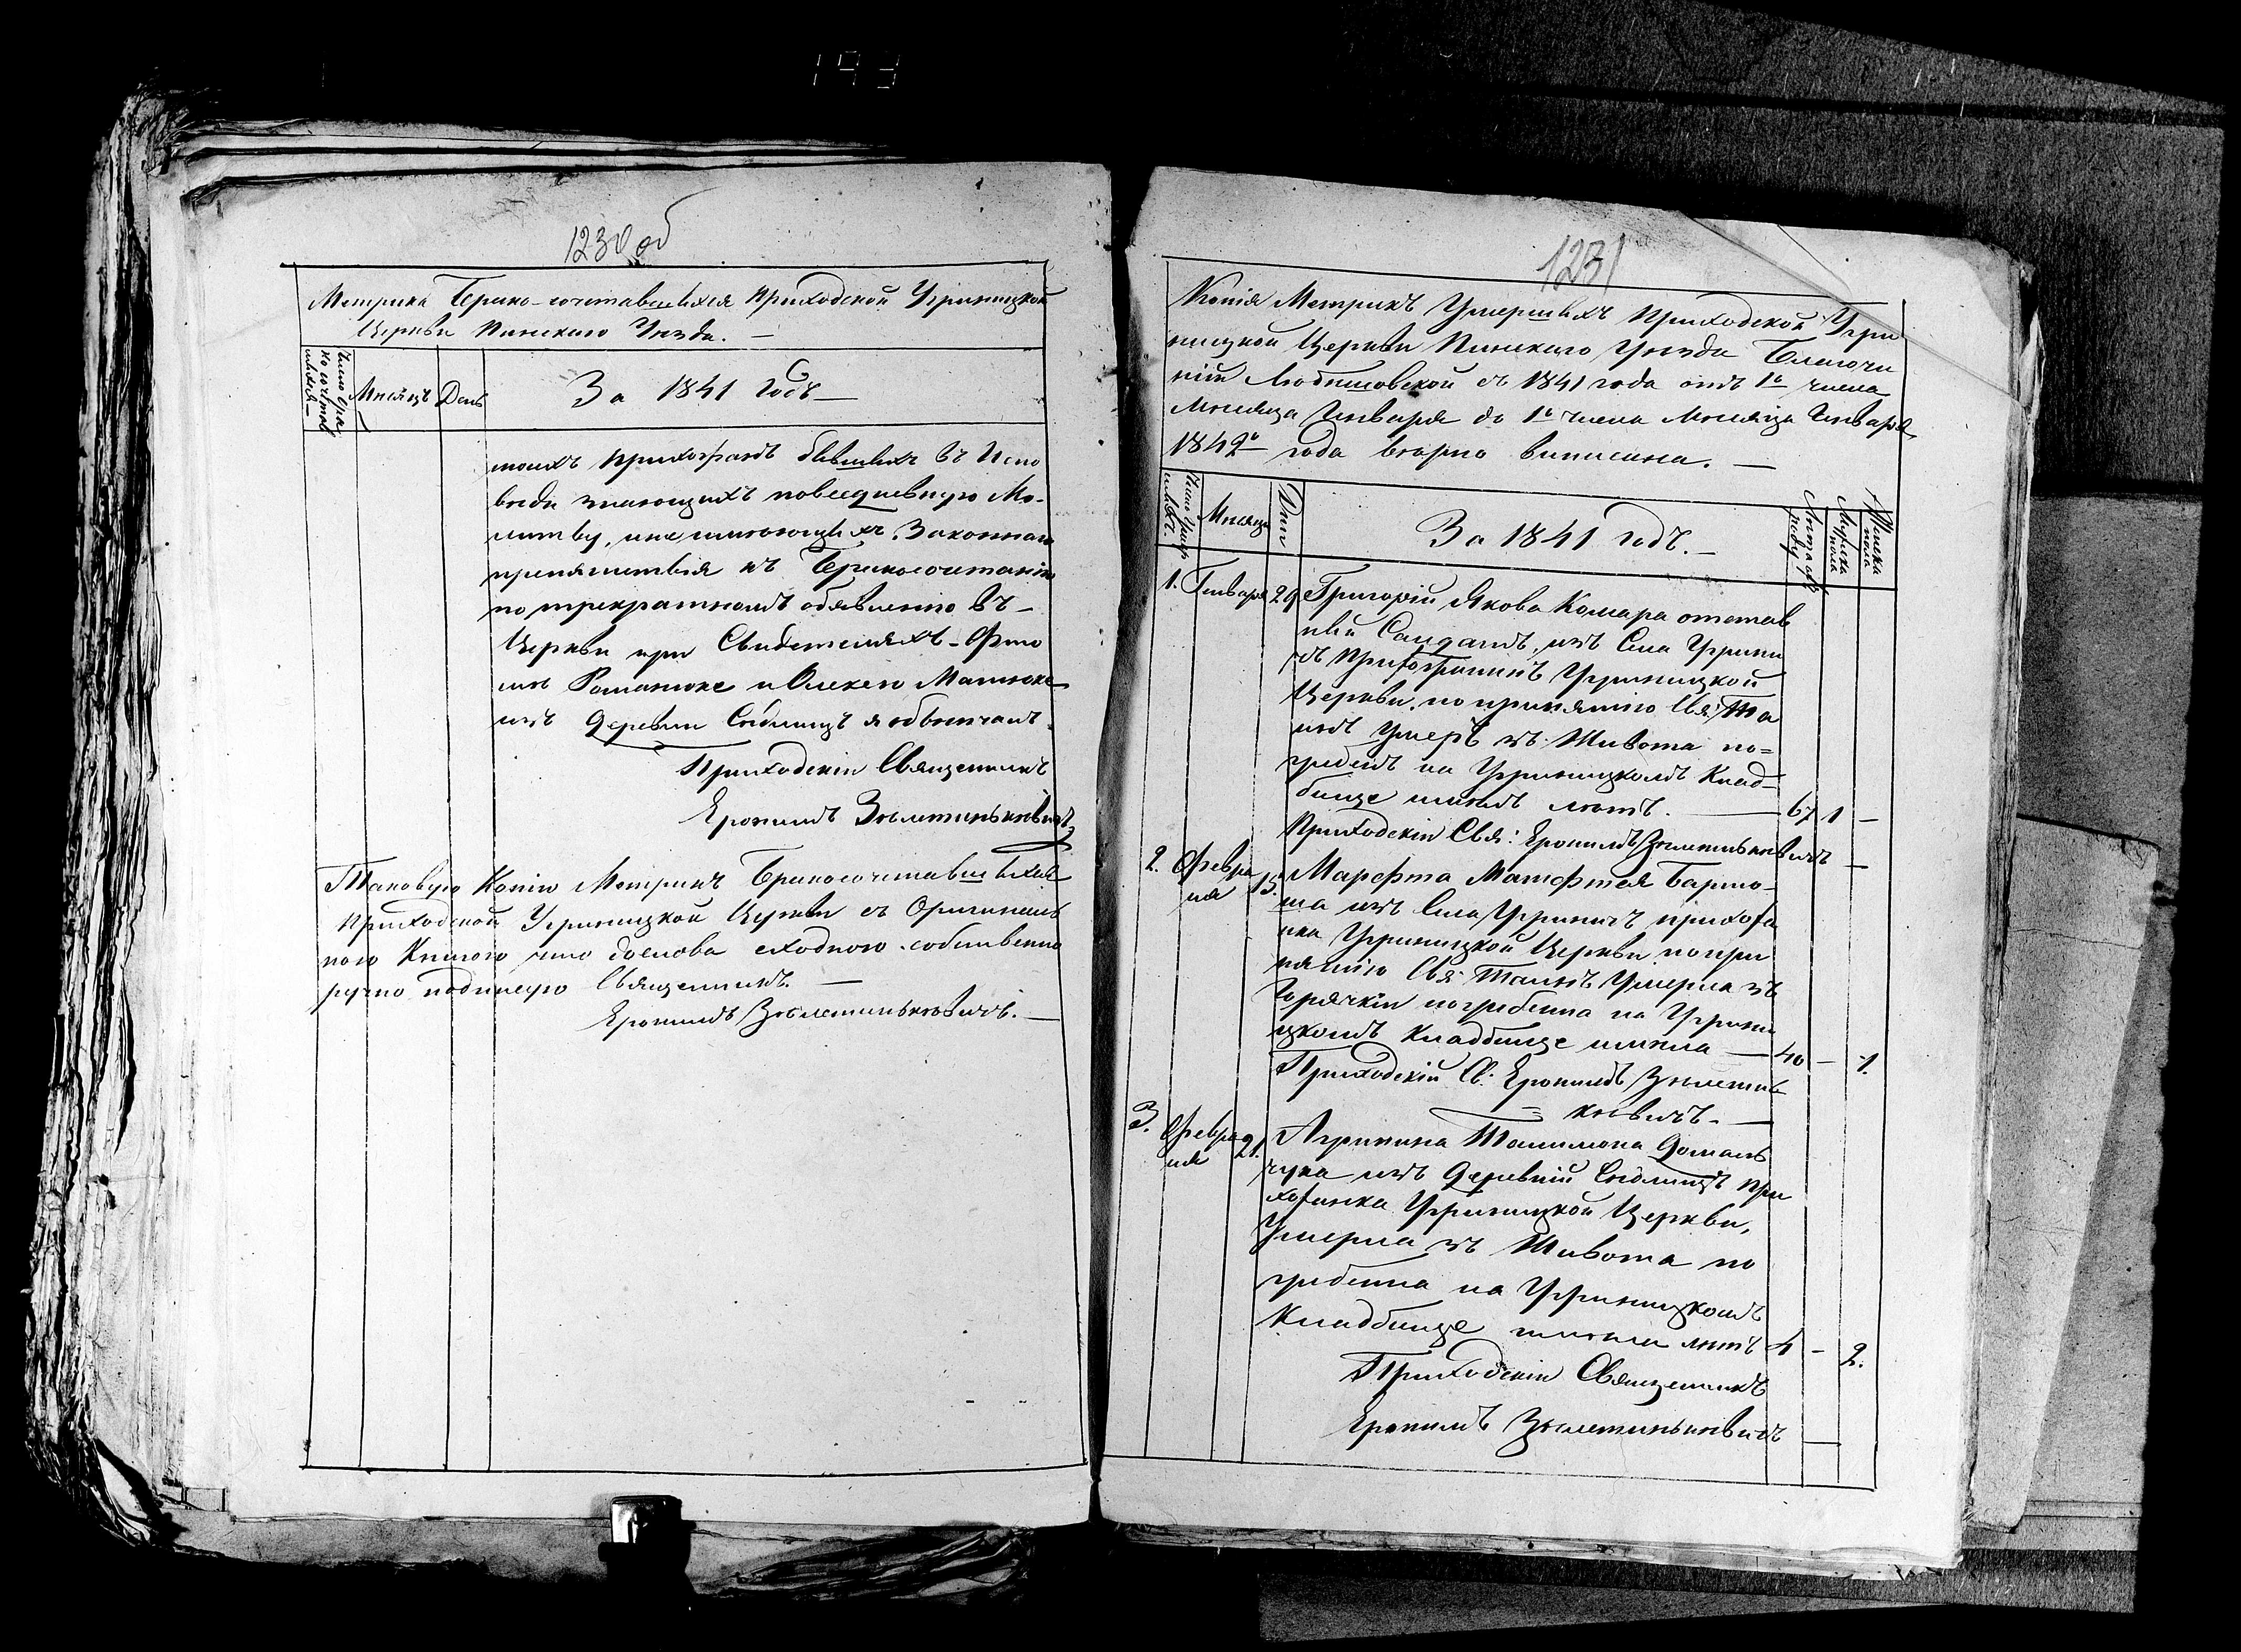 193
1230 об
Метрика Брако-сочетавшихся Приходской Угриницкой
Церкви Пинскаго Уезда. —
Число бра
ко сочетав
шихся —
Месяцъ
День
За 1841 Годъ —
моихъ прихожанъ бывшихъ въ Испо
веди знающихъ повседневную Мо-
литву, неимеющихъ Законнаго
препятствія къ Бракосочетанію
по трекратномъ обявленію въ
Церкви при Свидетеляхъ
Романюке и Олексею
изъ деревни Седлищъ я обвенчалъ.
Приходскій Священникъ
Еронимъ
Таковую Копію Метрикъ Бракосочетавшихся
Приходской Угриницкой Церкви съ Оригиналь
ною Книгою дослова сходною собственно
ручно подписую Священникъ. —
Еронимъ
1231
Копія Метрикъ Умершихъ Приходской Угри
ницкой Церкви Пинскаго Уезда Благочи
нія Любешовской съ 1841 года отъ 1о числа
Месяца Генваря до 1о числа Месяца Генваря
1842о года верно виписана. —
Число умер
шихъ.
Месяцъ
Дни
За 1841 годъ. —
Лета отъ
роду
Мужска
пола
Женска
пола
1. Генваря 29 Григорій Якова Комара отстав
ный Солдатъ, изъ Села Угрини
чъ прихожанинъ Угриницкой
Церкви, по принятію Свя: Та
инъ умеръ зъ Живота по=
гребенъ на Угриницкомъ Клад-
бище имелъ летъ. — 67 1 —
Приходскій Свя: Еронимъ —
2. Февра
ля 15. Марфта Матфтея
изъ Села Угриничъ прихожа
нка Угриницкой Церкви по при
нятію Свя: Таинъ Умерла зъ
Горячкіи погребенна на Угрини
цкомъ Кладбище имела — 40 — 1.
Приходскій Св: Еронимъ
3. Февра
ля 21. Агрипина
чука изъ деревніи Седлищъ при
хожанка Угриницкой Церкви,
Умерла зъ Живота по
гребенна на Угриницкомъ
Кладбище имела летъ 4 — 2.
Приходскій Священникъ
Еронимъ